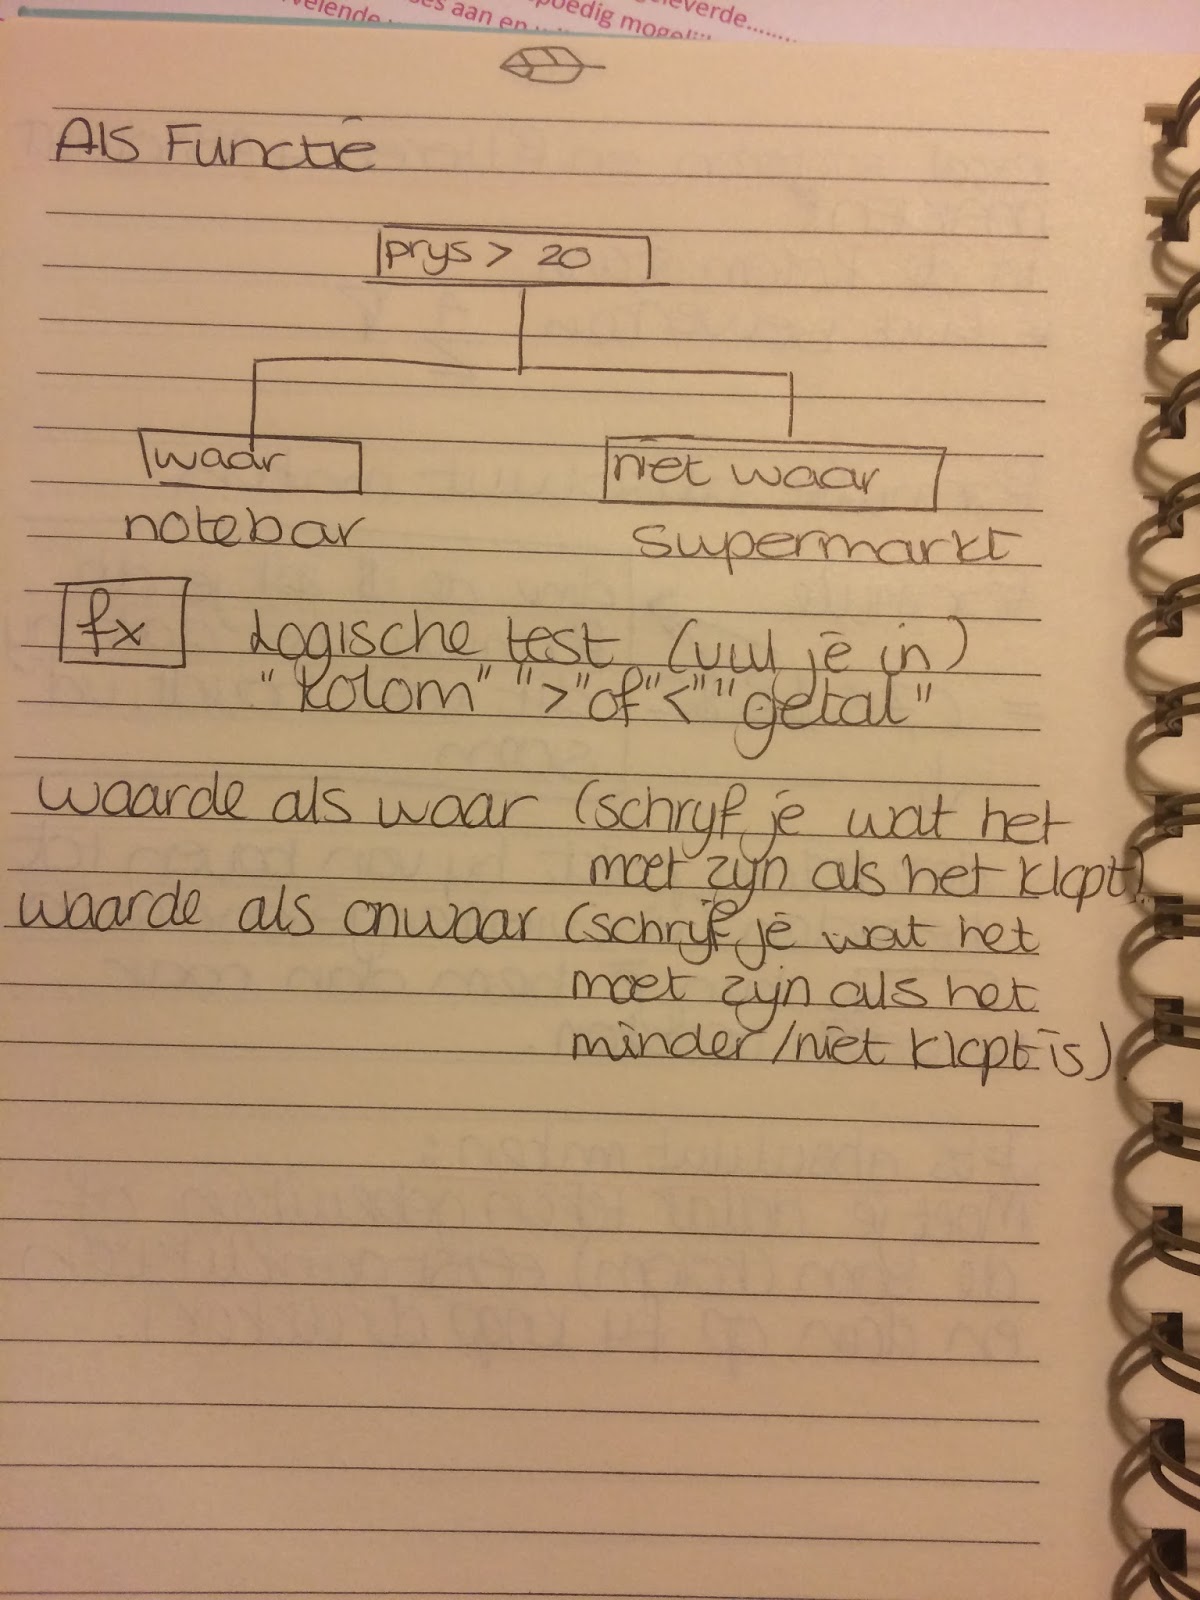 geleverde........
velende
ses aan en
spoedig
Als Functie
prys > 20
waar
niet waar
notebar
supermarkt
fx
Logische test (vul je in)
"kolom" ">" of "<" "getal"
waarde als waar (schryf je wat het
moet zyn als het klopt)
waarde als onwaar (schrijf je wat het
moet zijn als het
minder/niet klopt is)